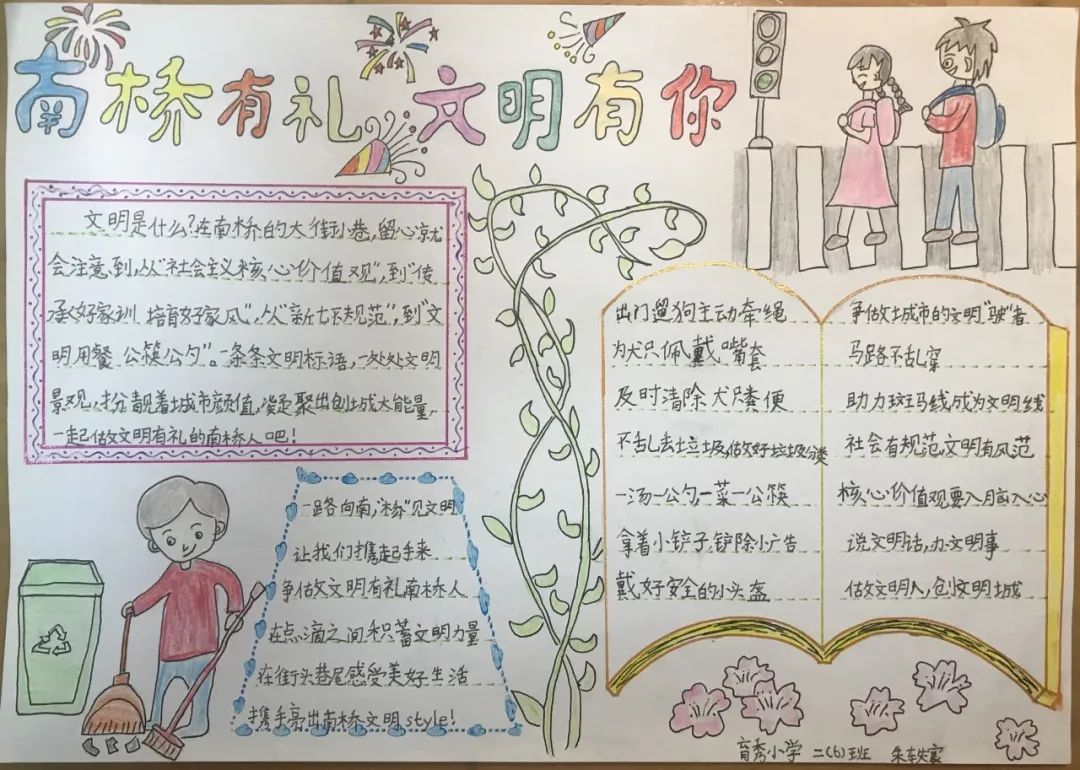 南桥有礼 文明有你
文明是什么?在南桥的大街小巷,留心就
会注意到,从“社会主义核心价值观”,到“传
承好家训 培育好家风”,从“新七不规范”,到“文
明用餐 公筷公勺”。一条条文明标语,一处处文明
景观,扮靓着城市颜值,凝聚出创城大能量,
一起做文明有礼的南桥人吧!
一路向南,“桥”见文明
让我们携起手来
争做文明有礼南桥人
在点滴之间积蓄文明力量
在街头巷尾感受美好生活
携手亮出南桥文明style!
出门遛狗主动牵绳
为犬只佩戴嘴套
及时清除犬只粪便
不乱丢垃圾,做好垃圾分类
一汤一公勺,一菜一公筷
拿着小铲子,铲除小广告
戴好安全的小头盔
争做城市的文明“驶”者
马路不乱穿
助力斑马线成为文明线
社会有规范文明有风范
核心价值观要入脑入心
说文明话,办文明事
做文明人,创文明城
育秀小学 二(6)班 朱